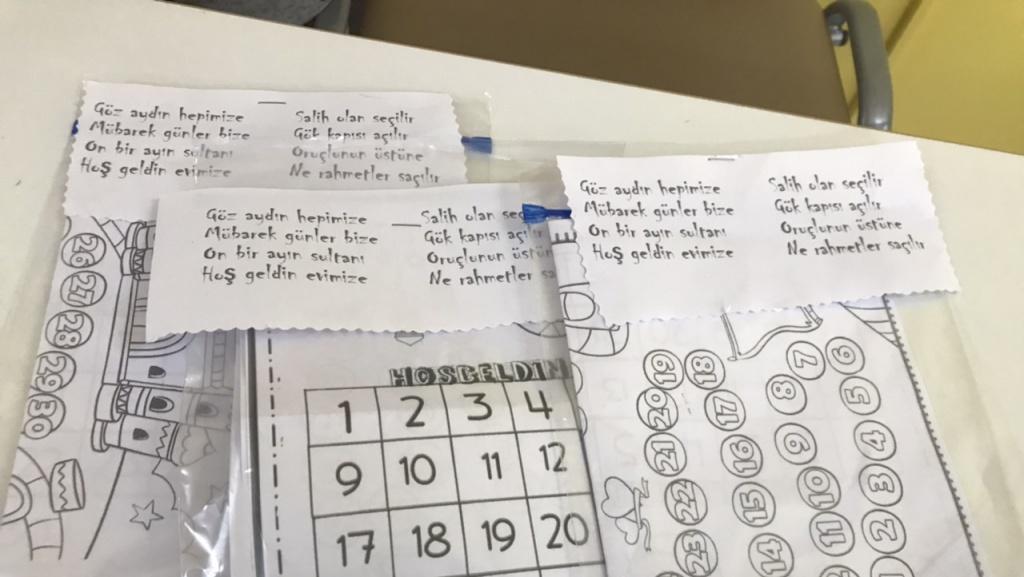 Göz aydın hepimize
Mübarek günler bize
On bir ayın sultanı
Hoş geldin evimize
Salih olan seçilir
Gök kapısı açılır
Oruçlunun üstüne
Ne rahmetler saçılır
Göz aydın hepimize
Mübarek günler bize
On bir ayın sultanı
Hoş geldin evimize
Salih olan
Gök kapısı açılır
Oruçlunun
Ne rahmetler
Göz aydın hepimize
Mübarek günler bize
On bir ayın sultanı
Hoş geldin evimize
Salih olan seçilir
Gök kapısı açılır
Oruçlunun üstüne
Ne rahmetler saçılır
26
27
28
29
30
HOŞGELDİN
1 2 3 4
9 10 11 12
17 18 19 20
19 18 7 6
20 17 8 5
21 16 9 4
22 15 10 3
23 14 11 2